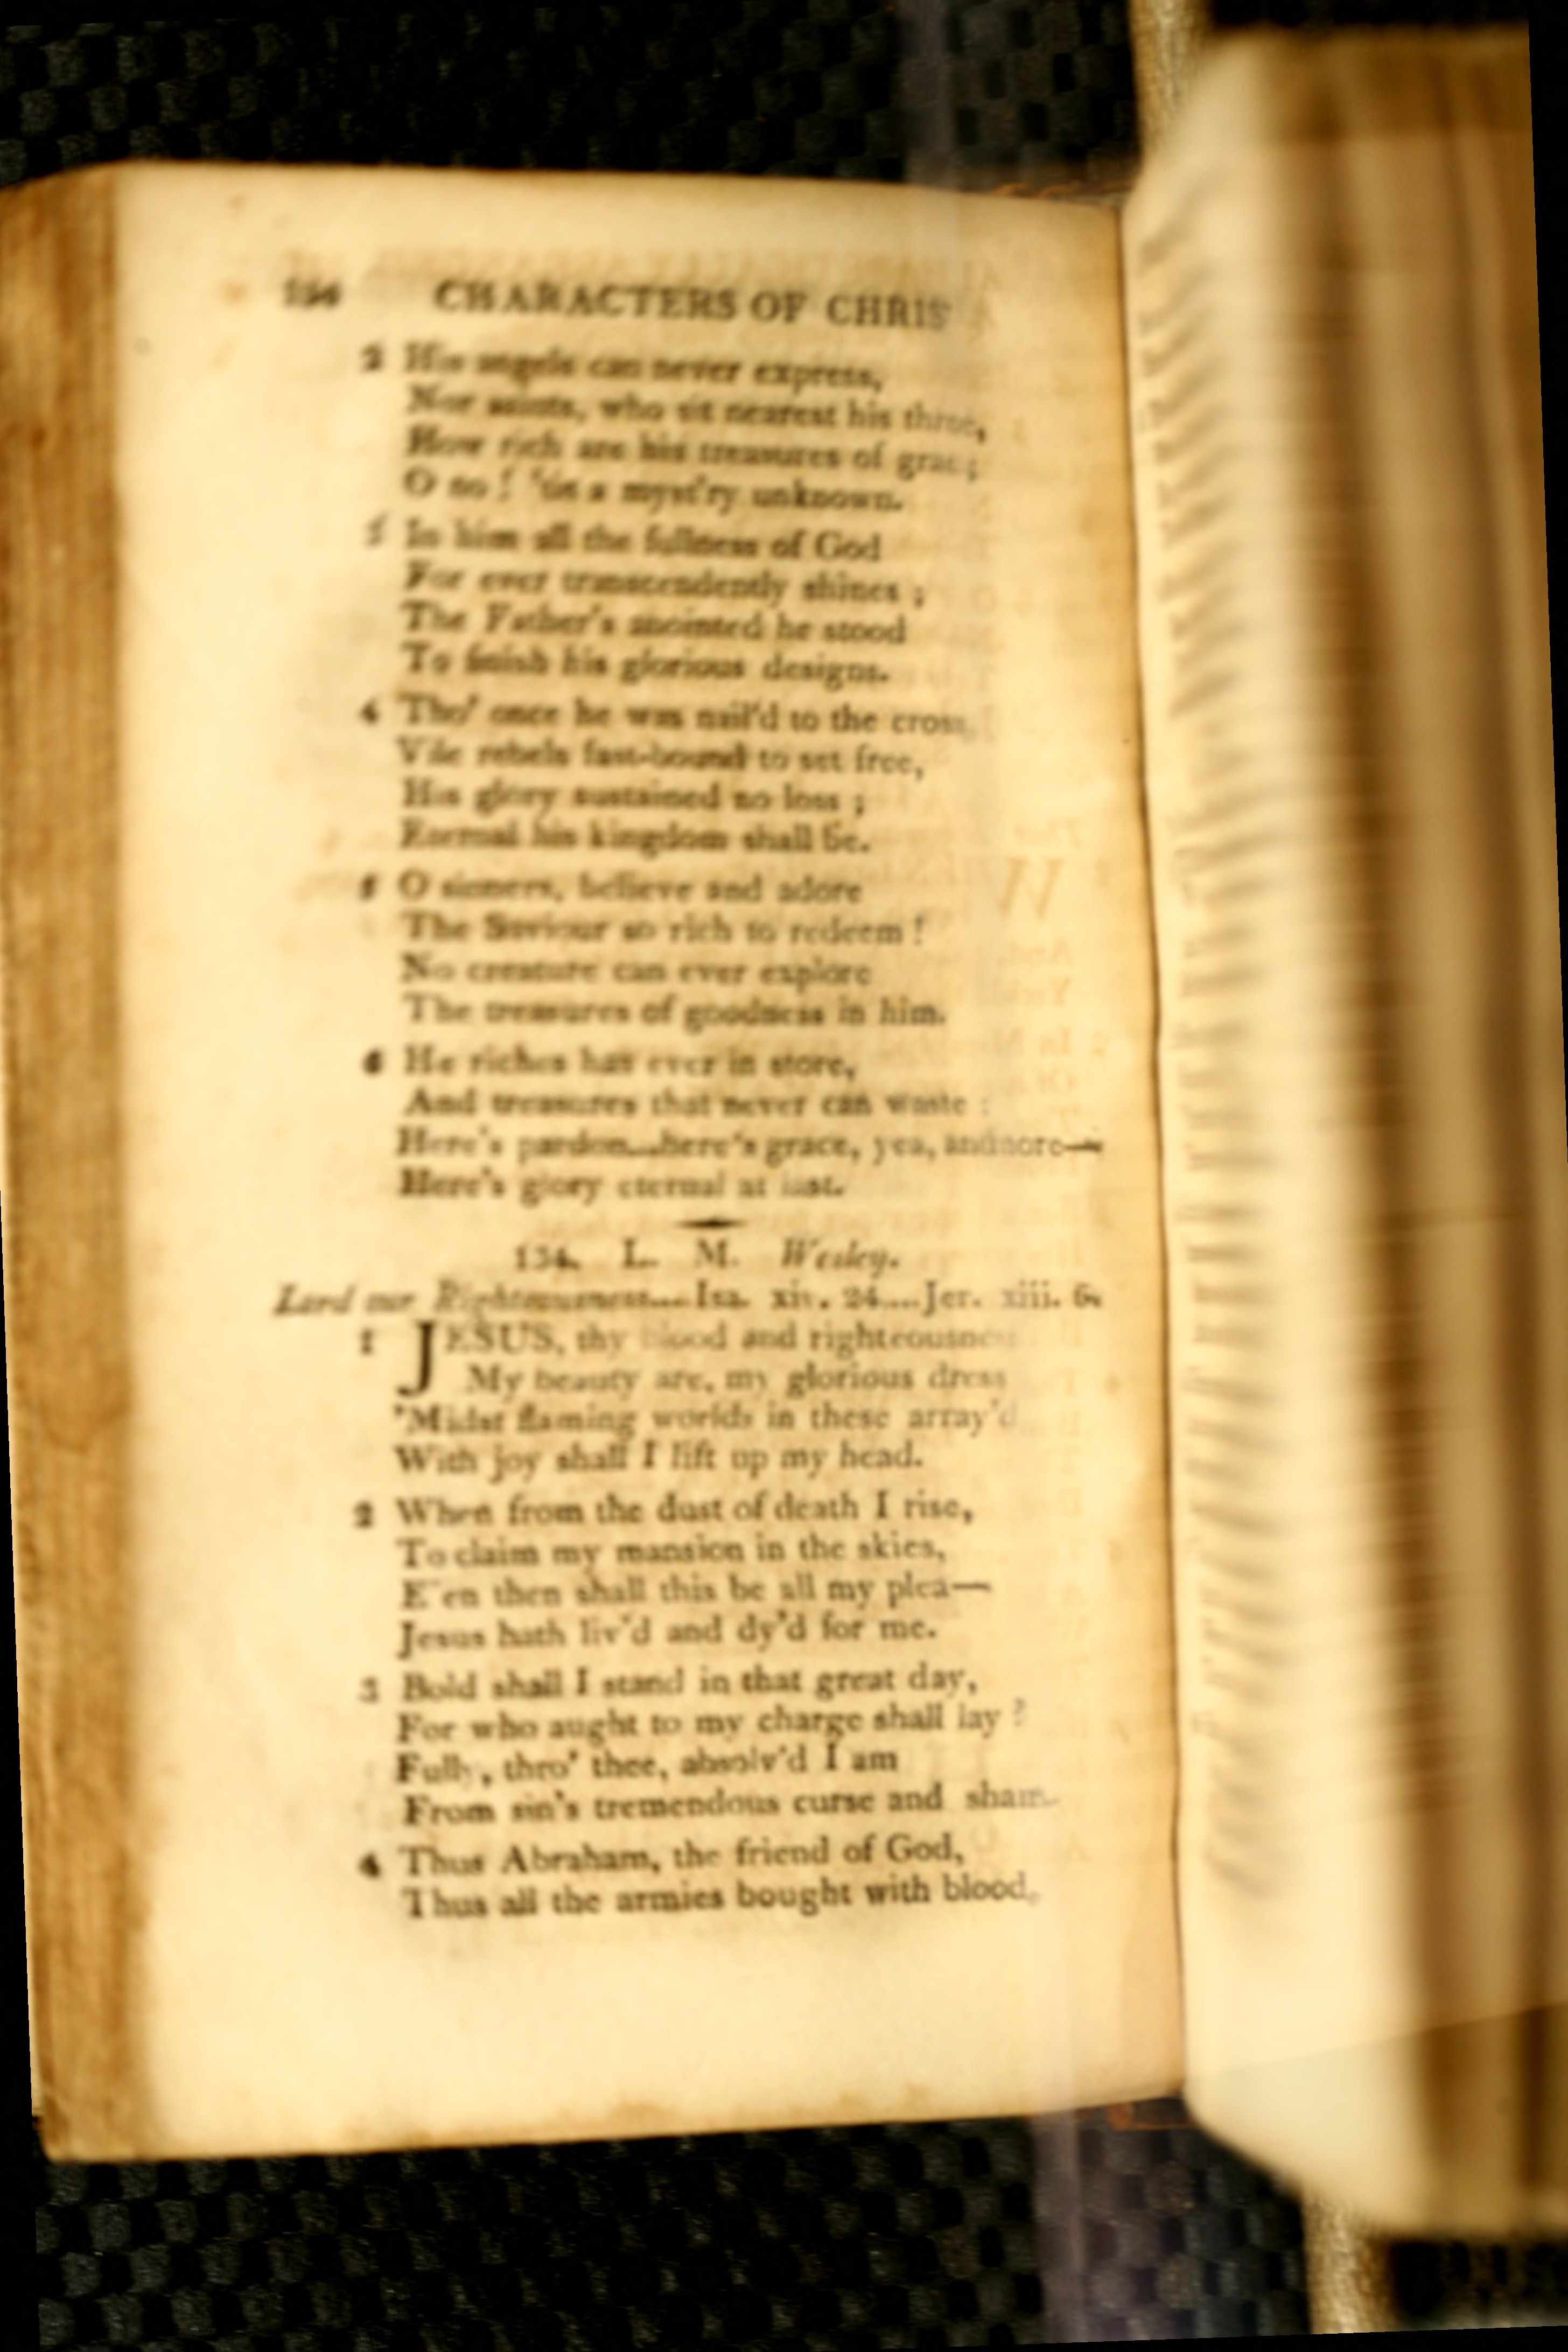 CHARACTERS OF CHRIS
2 His angels can never express,
Nor saints, who sit nearest his
How rich are his treasures of
O no! 'tis a myst'ry unknown.
In him all the fullness of God
For ever transcendently shines ;
The Father's anointed he stood
To finish his glorious designs.
4 Tho' once he was nail'd to the cross,
Vile rebels fast-bound to set free,
His glory sustained no loss ;
Eternal his kingdom shall be.
5 O sinners, believe and adore
The Saviour so rich to redeem!
No creature can ever explore
The treasures of goodness in him.
6 He riches has ever in store,
And treasures that never can waste :
Here's pardon...here's grace, yea, and more—
Here's glory eternal at last.
134. L. M. Wesley.
Lord our Righteousness....Isa. xiv. 24....Jer. xiii. 6.
1 JESUS, thy blood and
My beauty are, my glorious dress
'Midst flaming worlds in these array'd
With joy shall I lift up my head.
2 When from the dust of death I rise,
To claim my mansion in the skies,
E'en then shall this be all my plea—
Jesus hath liv'd and dy'd for me.
3 Bold shall I stand in that great day,
For who aught to my charge shall lay ?
Fully, thro' thee, absolv'd I am
From sin's tremendous curse and
4 Thus Abraham, the friend of God,
Thus all the armies bought with blood,